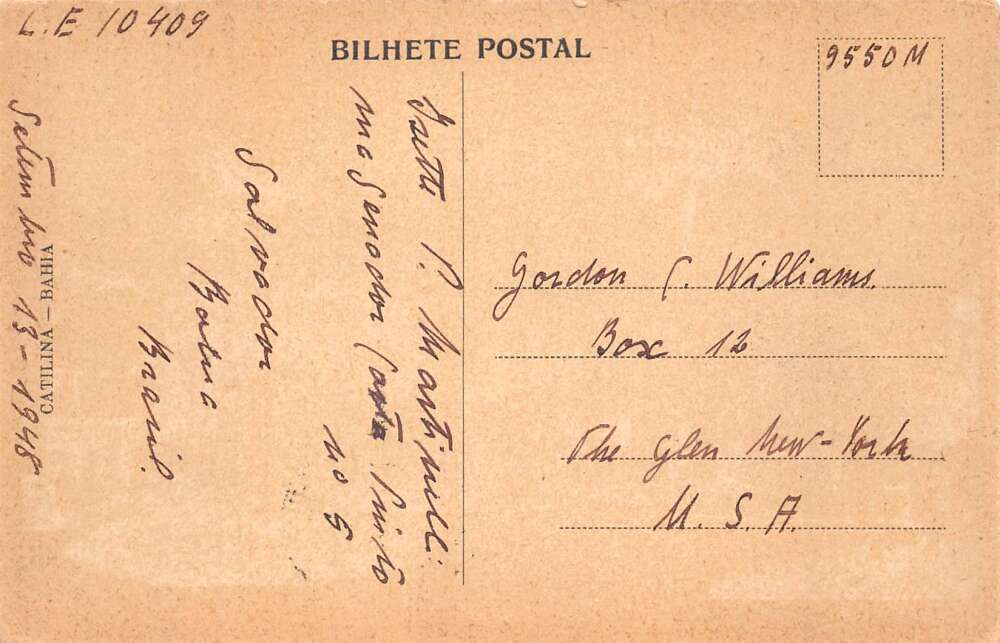 L.E 10409
BILHETE POSTAL
9550M
P. Martinelli
Senador Costa Pinto
no 5
Salvador
Bahia
Brasil.
Setembro 13-1948
CATILINA — BAHIA
Gordon C. Williams.
Box 12
The Glen New-York
U. S. A.